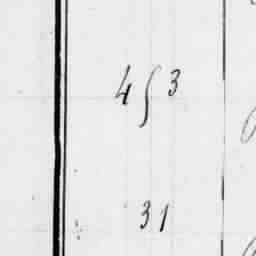 453
31